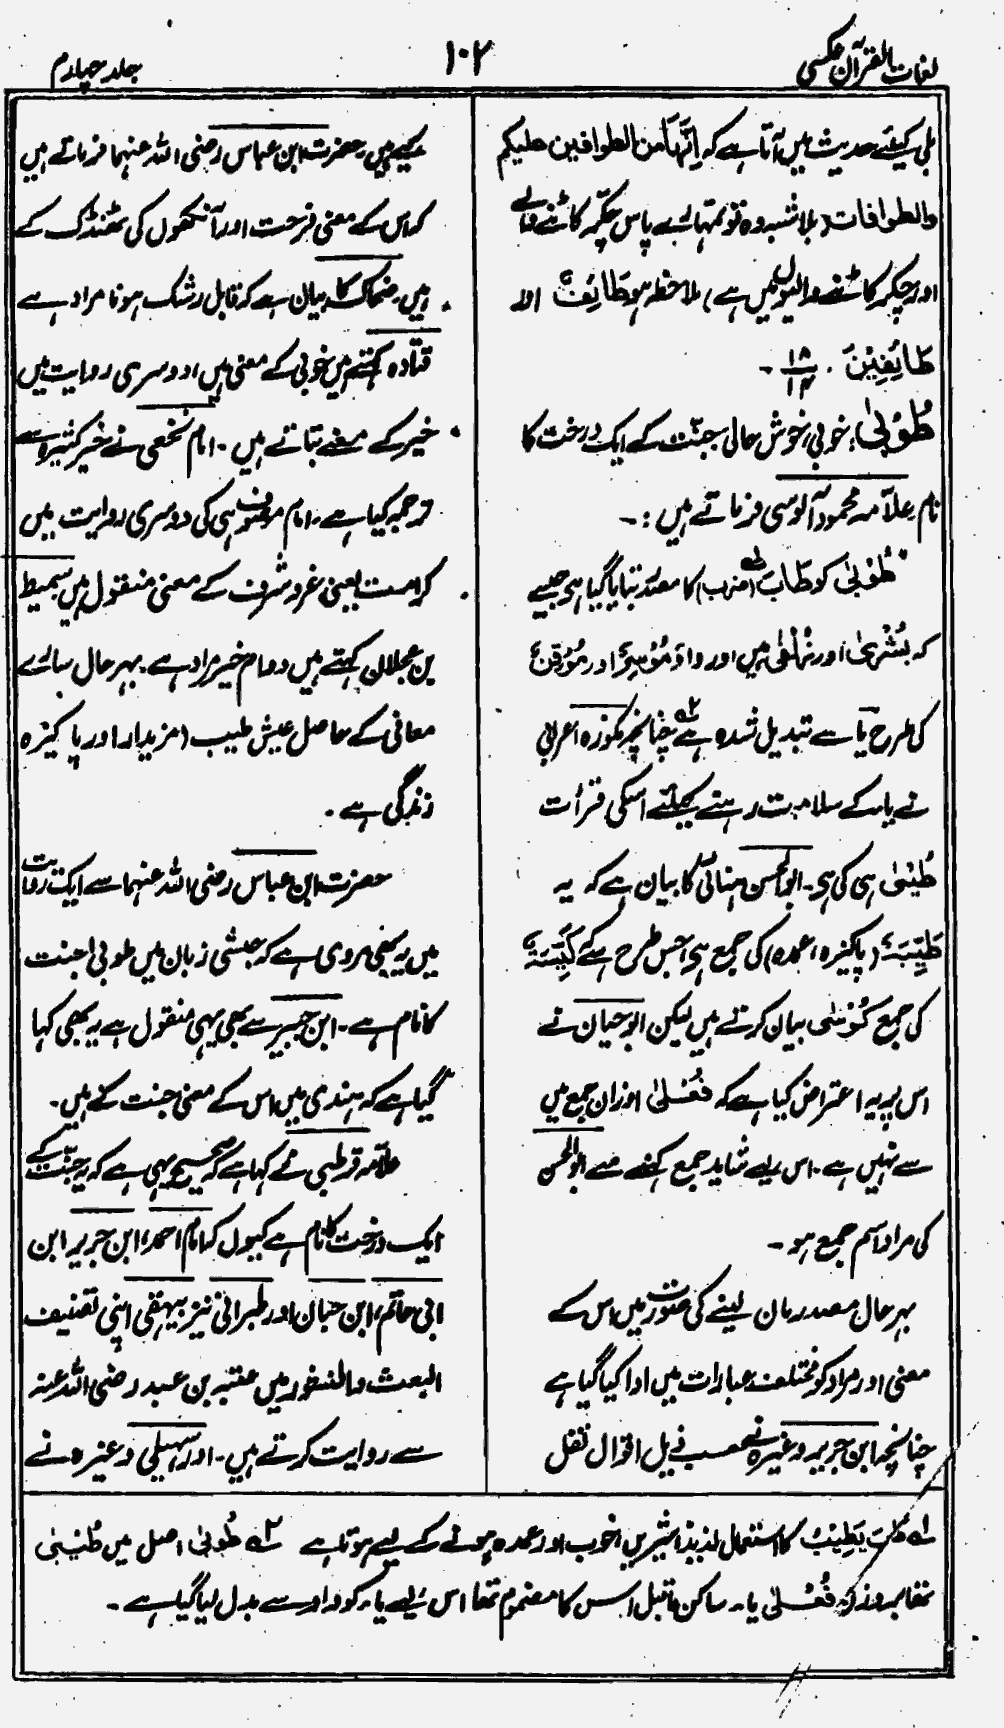 لغات القرآن عکسی
۱۰۲
جلد چہارم
بلی کیلئے حدیث میں آتا ہے کہ اِنَّهَا مِن الطوافین علیکم
والطوافات (بلا شبہ وہ تو تمہارے پاس چکر کاٹنے والے
اور چکر کاٹنے والیوں میں ہے) ملاحظہ ہو طَائِفٌ اور
طَائِفِیْنَ ۔ ۱۸/۱۴ ۔
طُوْبیٰ: خوبی، خوش حالی جنّت کے ایک درخت کا
نام علاّمہ محمود آلوسی فرماتے ہیں :۔
" طُوْبیٰ کو طَابَ لہ (ضرب) کا مصدر بتایا گیا ہی جیسے
کہ بُشْریٰ اور زُلْفیٰ ہیں اور واؤ مُوْسِرٌ اور مُوْقِنٌ
کی طرح یا سے تبدیل شدہ ہے ۲ہ چنانچہ مکوزہ اعرابی
نے یاء کے سلامت رہنے کیلئے اسکی قرأت
طُیْبیٰ ہی کی ہی۔ ابو الحسن ہنائی کا بیان ہے کہ یہ
طَیِّبَۃٌ (پاکیزہ، عمدہ) کی جمع ہی جس طرح سے کَیِّسَۃٌ
کی جمع کُوْسٰی بیان کرتے ہیں لیکن ابو حیان نے
اس پر یہ اعتراض کیا ہے کہ فُعْلیٰ اوزان جمع میں
سے نہیں ہے۔ اس لیے شاید جمع کہنے سے ابو الحسن
کی مراد اسم جمع ہو ۔
بہر حال مصدر مان لینے کی صورت میں اس کے
معنی اور مراد کو مختلف عبارات میں ادا کیا گیا ہے
چنانچہ ابن جریر وغیرہ نے حسب ذیل اقوال نقل
کیے ہیں۔ حضرت ابن عباس رضی اللہ عنہما فرماتے ہیں
کہ اس کے معنی فرحت اور آنکھوں کی ٹھنڈک کے
ہیں۔ ضحاک کا بیان ہے کہ قابل رشک ہونا مراد ہے
قتادہ کہتے ہیں خوبی کے معنی ہیں اور دوسری روایت میں
خیر کے معنے بتاتے ہیں ۔ امام نخعی نے خیر کثیر سے
ترجمہ کیا ہے۔ امام موصوف ہی کی دوسری روایت میں
کرامت یعنی عز و شرف کے معنی منقول ہیں سمیط
بن عجلان کہتے ہیں دوام خیر مراد ہے۔ بہر حال سارے
معانی کے حاصل عیش طیب (مزیدار اور پاکیزہ
زندگی ہے ۔
حضرت ابن عباس رضی اللہ عنہما سے ایک روایت
میں یہ بھی مروی ہے کہ حبشی زبان میں طوبی جنت
کا نام ہے ۔ ابن جبیر سے بھی یہی منقول ہے یہ بھی کہا
گیا ہے کہ ہندی میں اس کے معنی جنت کے ہیں۔
علاّمہ قرطبی نے کہا ہے کہ صحیح یہی ہے کہ یہ جنت کے
ایک درخت کا نام ہے کیوں کہ امام احمد، ابن جریر ابن
ابی حاتم، ابن حبان اور طبرانی نیز بیہقی اپنی تصنیف
البعث والنشور میں عتبہ بن عبد رضی اللہ عنہ
سے روایت کرتے ہیں۔ اور سہیلی وغیرہ نے
لہ طَابَ یَطِیْبُ کا استعمال لذیذ، شیریں، خوب اور عمدہ ہونے کے لیے ہوتا ہے ۲ہ طُوبیٰ اصل میں طُیْبیٰ
تھا بروزن فُعْلیٰ یاء ساکن ماقبل اس کا مضموم تھا اس لیے یاء کو واو سے بدل لیا گیا ہے ۔